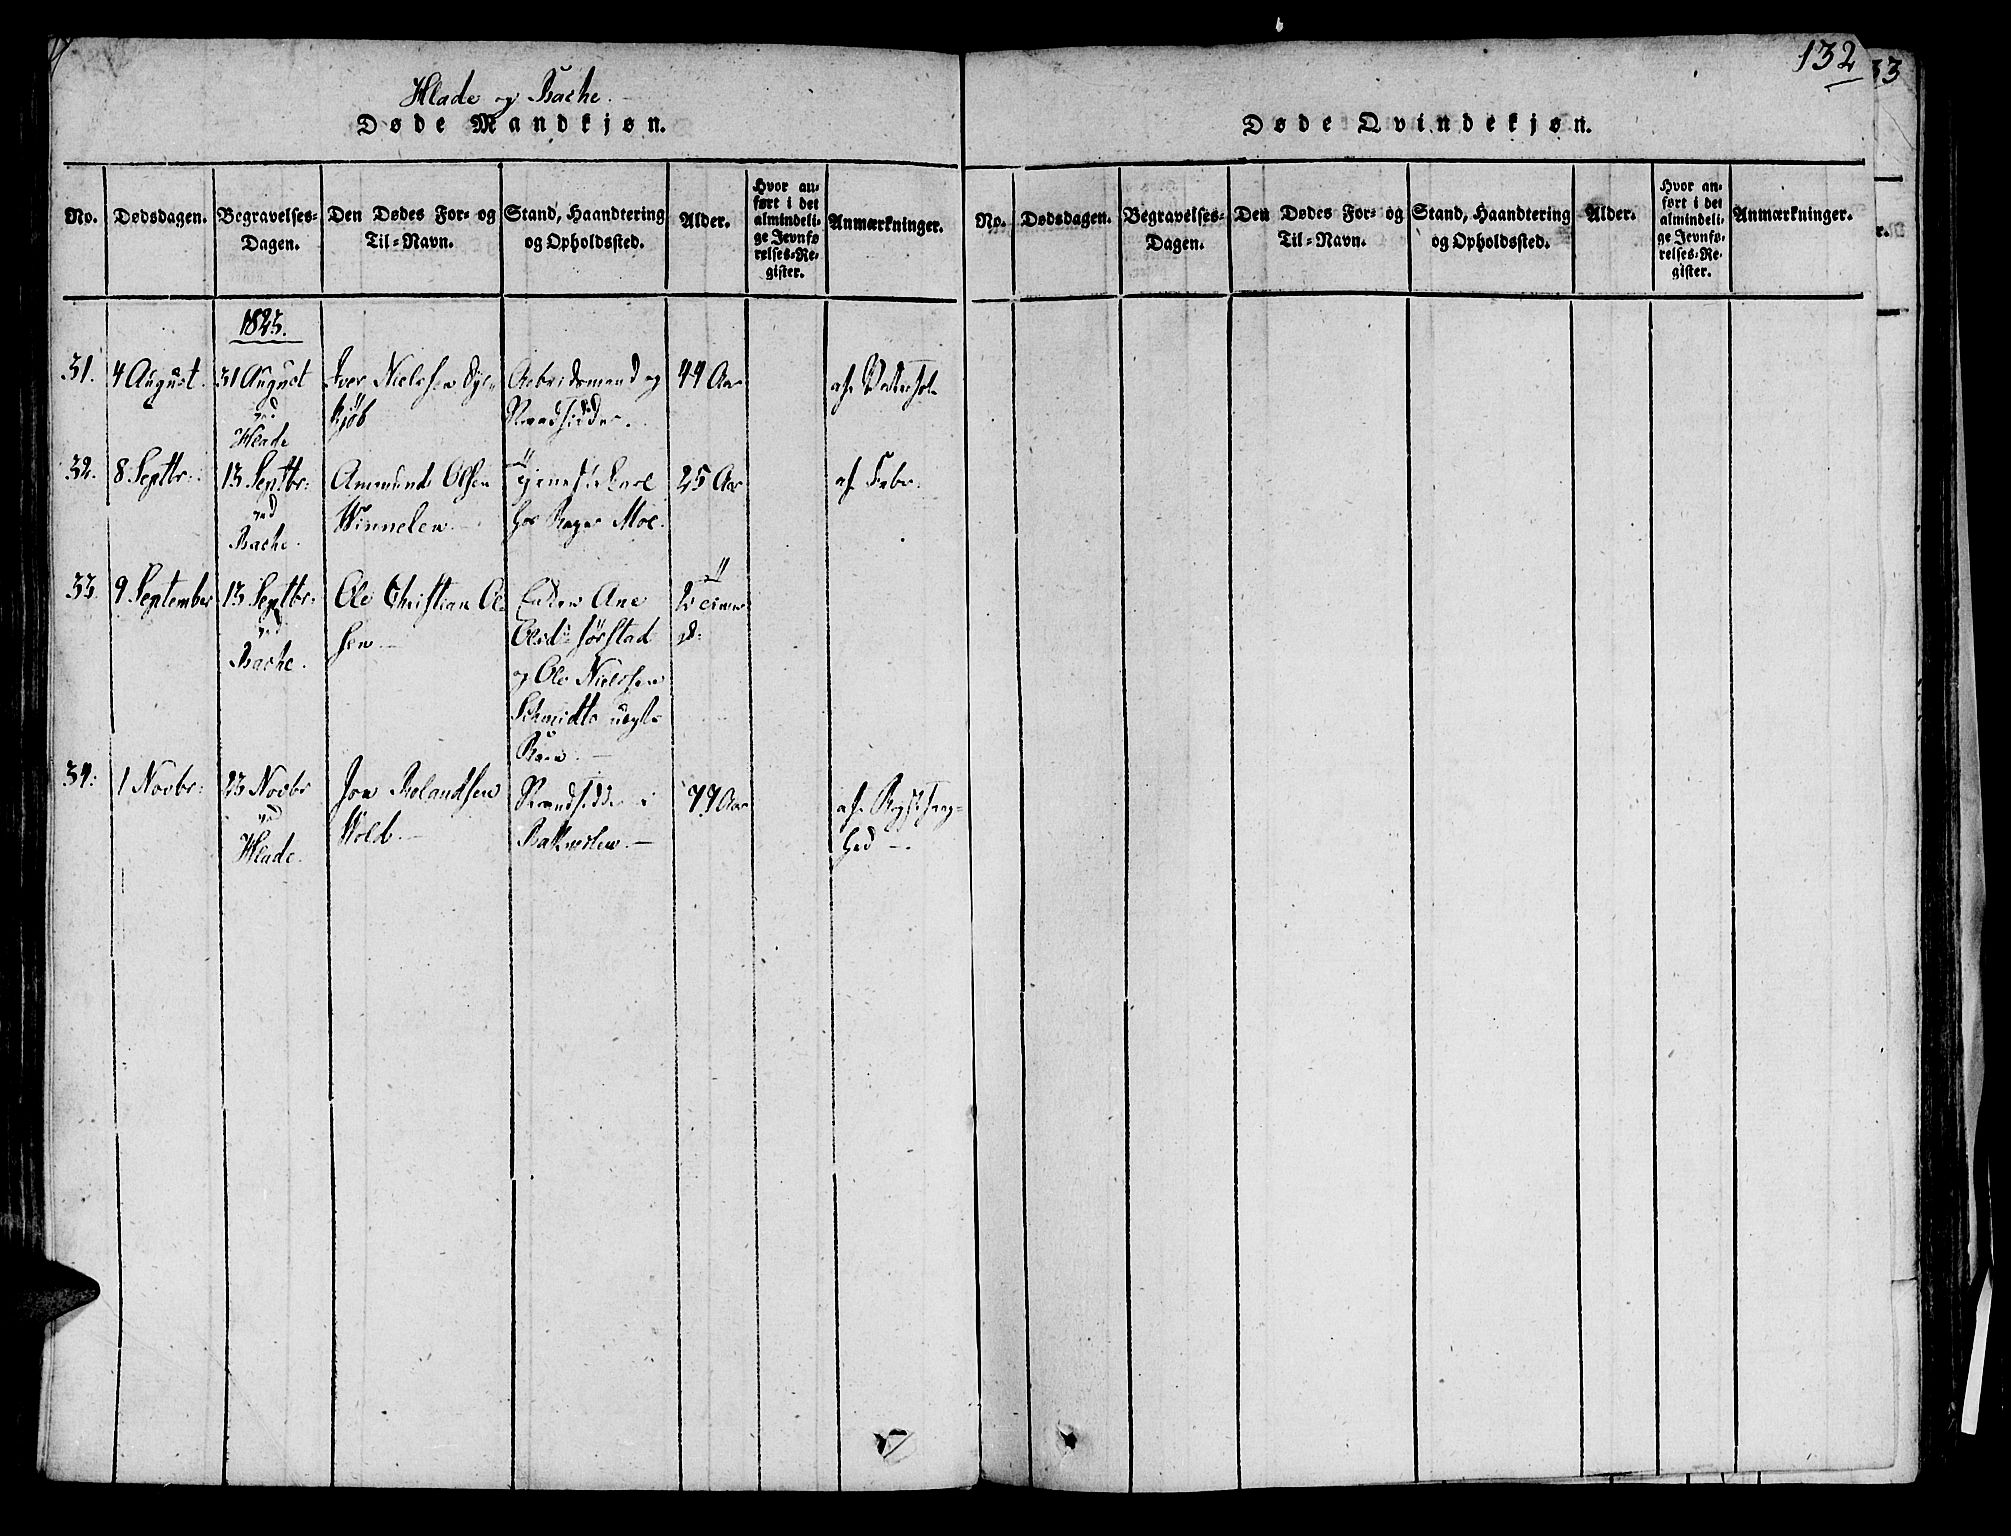 132
33
Hlade og Bache.
Døde Mandkjøn.
No.
Dødsdagen.
Begravelses-
Dagen.
Den Dødes For- og
Til-Navn.
Stand, Haandtering
og Opholdssted.
Alder.
Hvor an-
ført i det
almindeli-
ge Jevnfø
relses-Re-
gister.
Anmærkninger.
1823.
31.
4 August.
31 August
ved
Hlade
Iver Nielssen
kjöb
Arbeidsmand og
Strandsidder.
44 Aar
af
32.
8 Septbr:
13 Septbr:
ved
Bache.
Ammund Olsen
Winnelen
Tjenestekarl
hos Moe.
25 Aar
af Feber.
33.
9 September
13 Septbr:
ved
Bache.
Ole Christian Ol-
sen
Enken Ane
Olsd:
og Ole Nielssen
Schmidts uægte
Barn.
34.
1 Novbr:
23 Novbr
ved
Hlade.
Jon Rolandsen
Wold.
Strandsidder i
Bakkeslen.
77 Aar
af Brystsvag-
hed
Døde Qvindekjøn.
No.
Dødsdagen.
Begravelses-
Dagen.
Den Dødes For- og
Til-Navn.
Stand, Haandtering
og Opholdssted.
Alder.
Hvor an-
ført i det
almindeli-
ge Jevnfø-
relses-Re-
gister.
Anmærkninger.